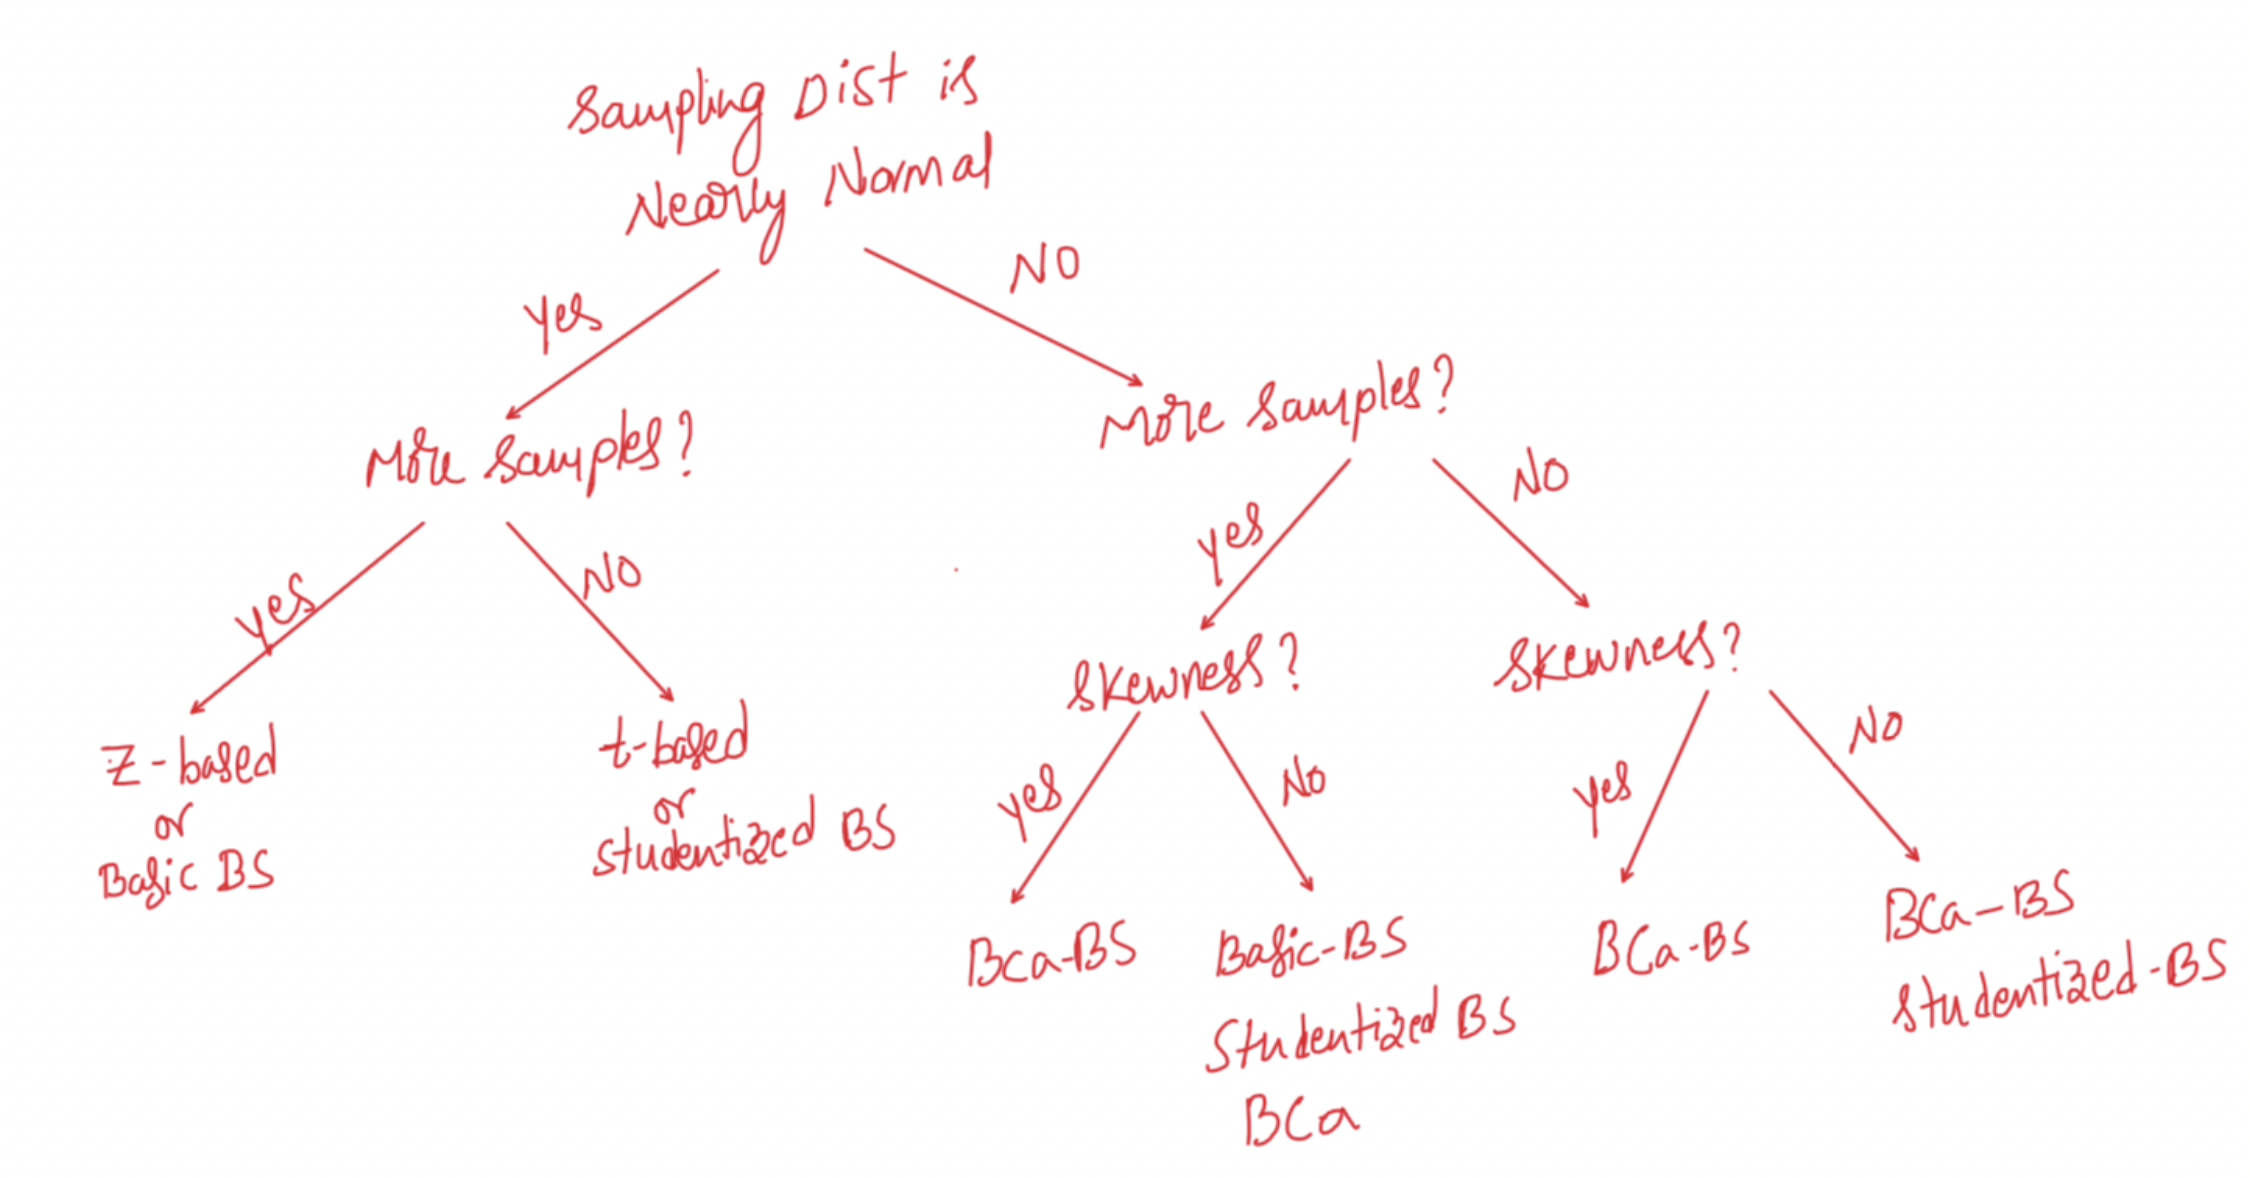 Sampling Dist is
Nearly Normal
Yes
NO
More Samples?
More Samples?
Yes
NO
Yes
NO
Z-based
or
Basic BS
t-based
or
Studentized BS
Skewness?
Skewness?
Yes
No
Yes
NO
Bca-BS
Basic-BS
Studentized BS
BCa
BCa-BS
BCa-BS
Studentized-BS